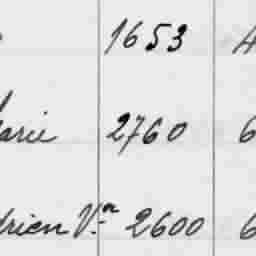 1653 4
arie 2760 6
drien V.ᵉ 2600 6